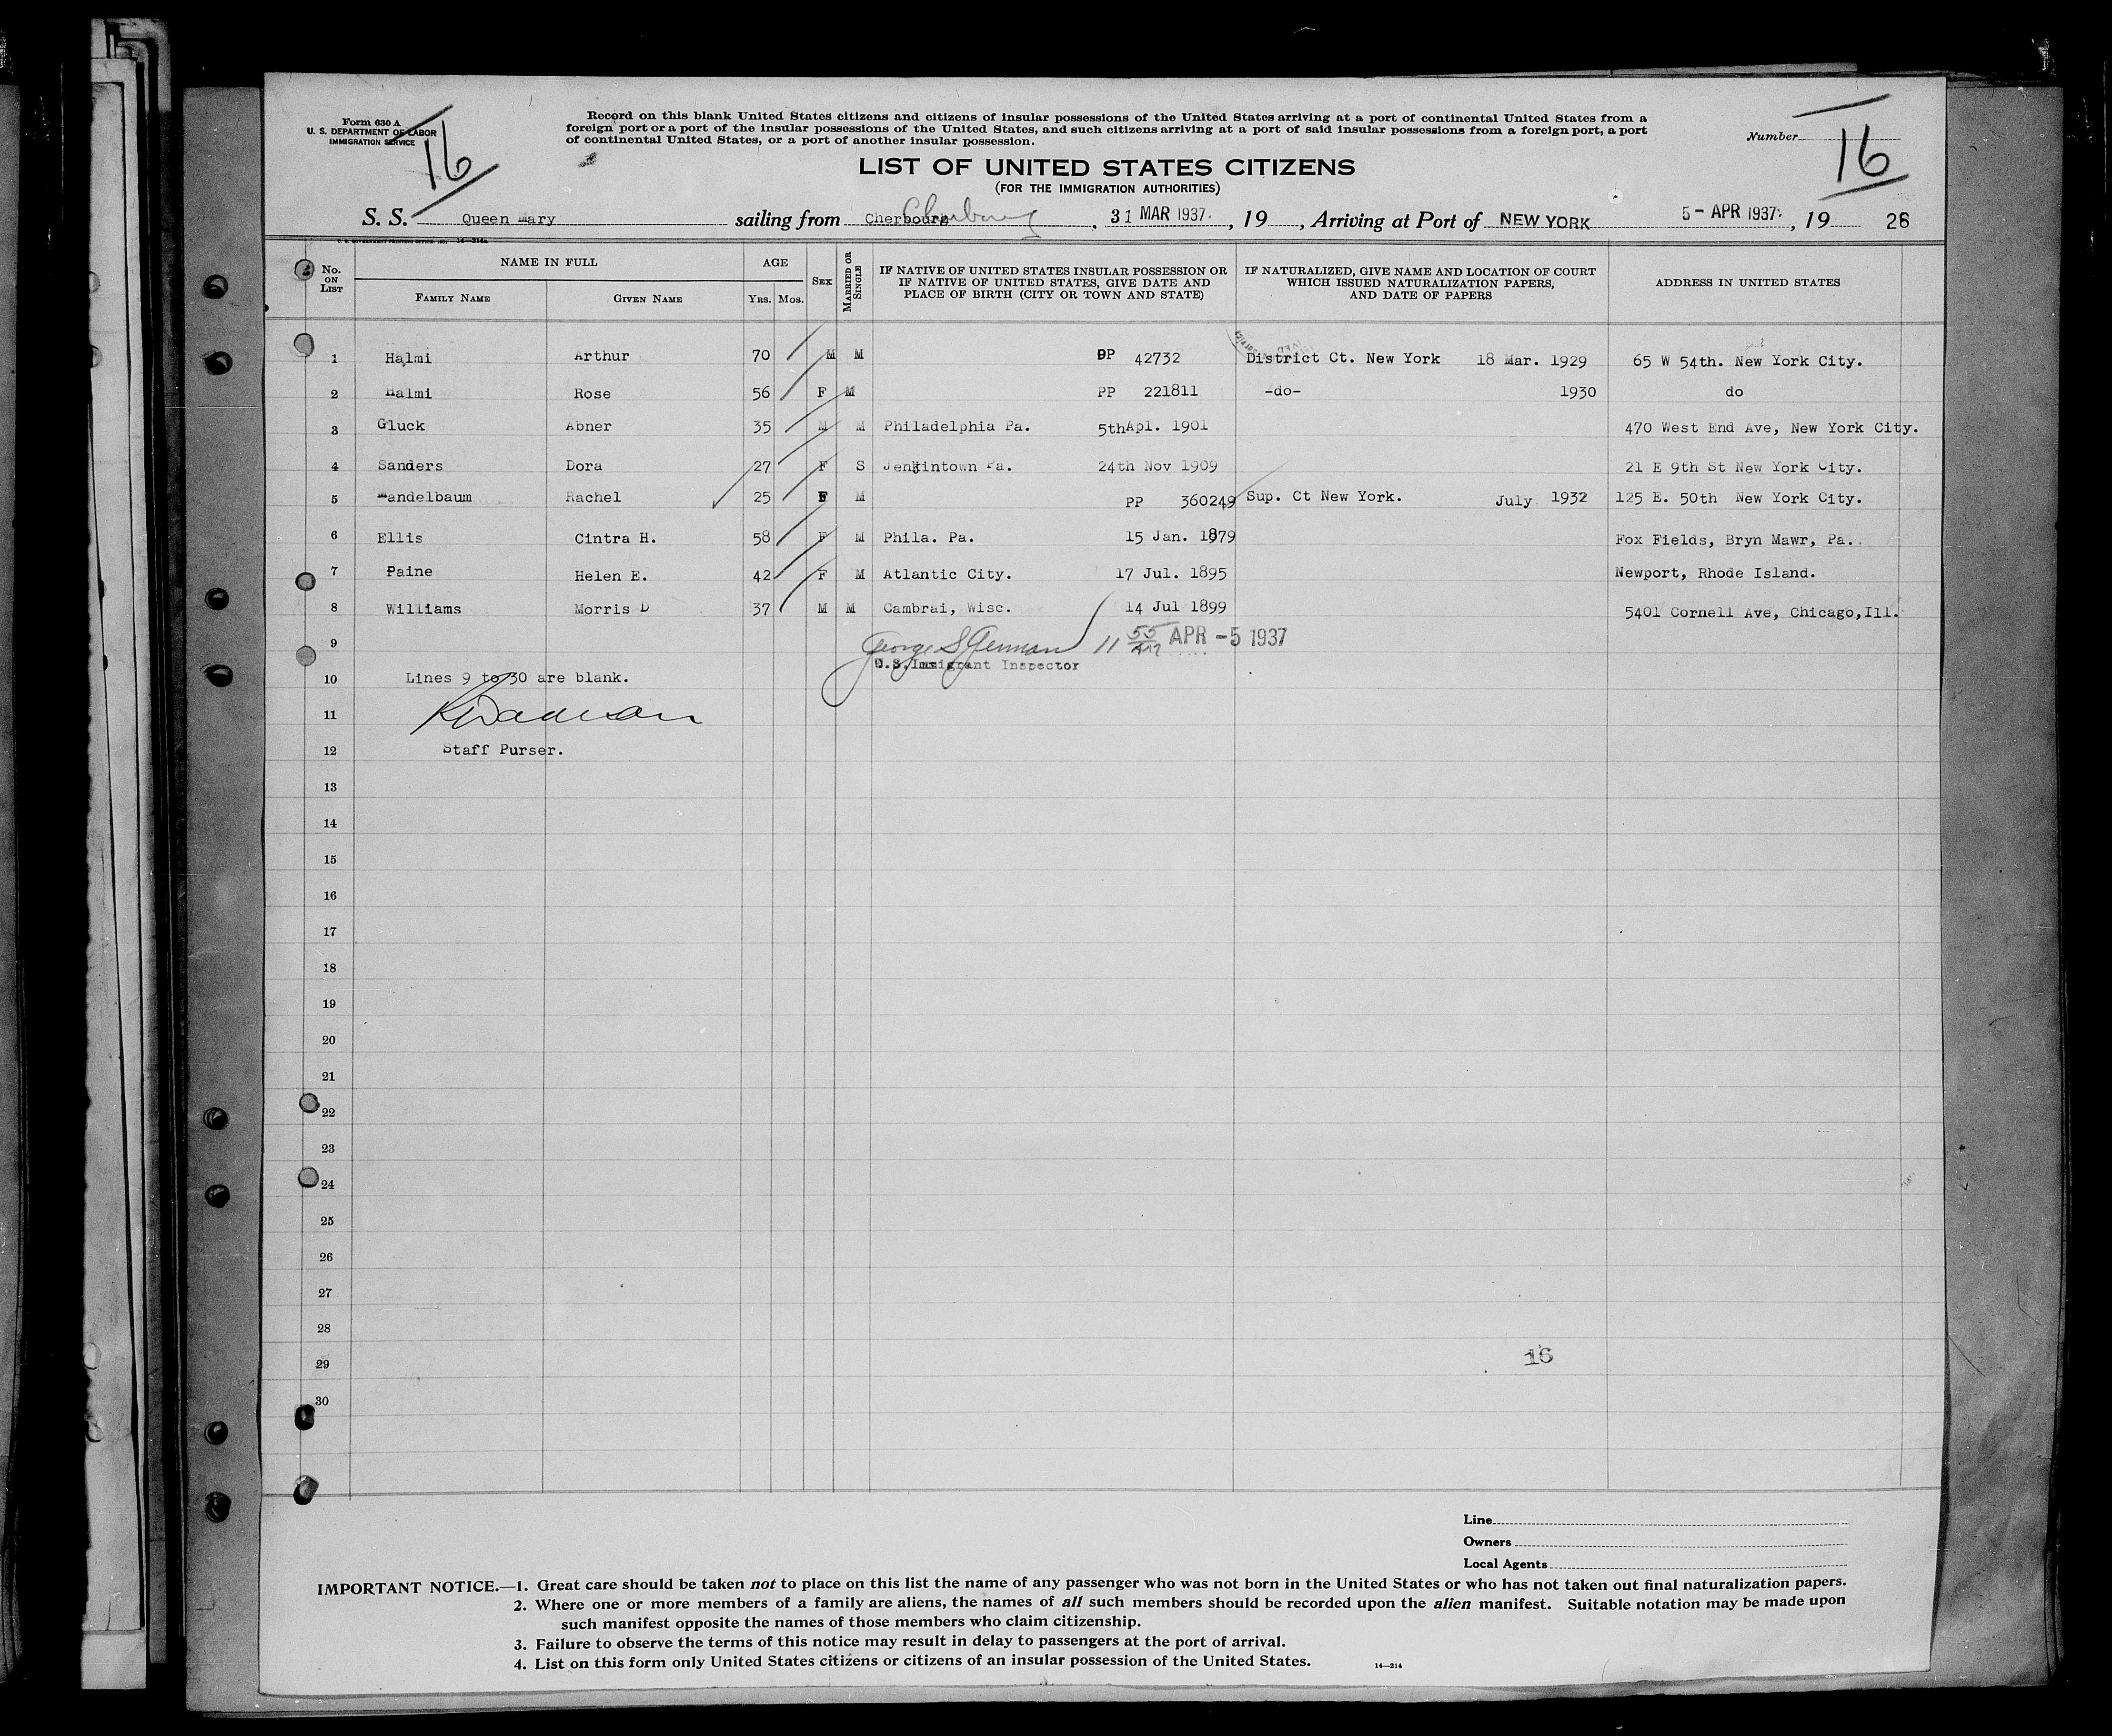 Form 630 A
U. S. DEPARTMENT OF LABOR
IMMIGRATION SERVICE
16
Record on this blank United States citizens and citizens of insular possessions of the United States arriving at a port of continental United States from a
foreign port or a port of the insular possessions of the United States, and such citizens arriving at a port of said insular possessions from a foreign port, a port
of continental United States, or a port of another insular possession.
Number
16
LIST OF UNITED STATES CITIZENS
(FOR THE IMMIGRATION AUTHORITIES)
S. S. Queen Mary sailing from Cherbourg Cherbourg, 31 MAR 1937, 19, Arriving at Port of NEW YORK 5- APR 1937, 19 28
No. ON LIST
NAME IN FULL
FAMILY NAME
GIVEN NAME
AGE
YRS. MOS.
SEX
MARRIED OR SINGLE
IF NATIVE OF UNITED STATES INSULAR POSSESSION OR
IF NATIVE OF UNITED STATES, GIVE DATE AND
PLACE OF BIRTH (CITY OR TOWN AND STATE)
IF NATURALIZED, GIVE NAME AND LOCATION OF COURT
WHICH ISSUED NATURALIZATION PAPERS,
AND DATE OF PAPERS
ADDRESS IN UNITED STATES
1 Halmi Arthur 70 M M PP 42732 District Ct. New York 18 Mar. 1929 65 W 54th. New York City.
2 Halmi Rose 56 F M PP 221811 -do- 1930 do
3 Gluck Abner 35 M M Philadelphia Pa. 5thApl. 1901 470 West End Ave, New York City.
4 Sanders Dora 27 F S Jenkintown Pa. 24th Nov 1909 21 E 9th St New York City.
5 Mandelbaum Rachel 25 F M PP 360249 Sup. Ct New York. July 1932 125 E. 50th New York City.
6 Ellis Cintra H. 58 F M Phila. Pa. 15 Jan. 1879 Fox Fields, Bryn Mawr, Pa.
7 Paine Helen E. 42 F M Atlantic City. 17 Jul. 1895 Newport, Rhode Island.
8 Williams Morris D 37 M M Cambrai, Wisc. 14 Jul 1899 5401 Cornell Ave, Chicago,Ill.
9 George S 11 55 APR -5 1937
U.S.Immigrant Inspector
10 Lines 9 to 30 are blank.
11
12 Staff Purser.
13
14
15
16
17
18
19
20
21
22
23
24
25
26
27
28
29 16
30
Line
Owners
Local Agents
IMPORTANT NOTICE.—1. Great care should be taken not to place on this list the name of any passenger who was not born in the United States or who has not taken out final naturalization papers.
2. Where one or more members of a family are aliens, the names of all such members should be recorded upon the alien manifest. Suitable notation may be made upon
such manifest opposite the names of those members who claim citizenship.
3. Failure to observe the terms of this notice may result in delay to passengers at the port of arrival.
4. List on this form only United States citizens or citizens of an insular possession of the United States.
14—214